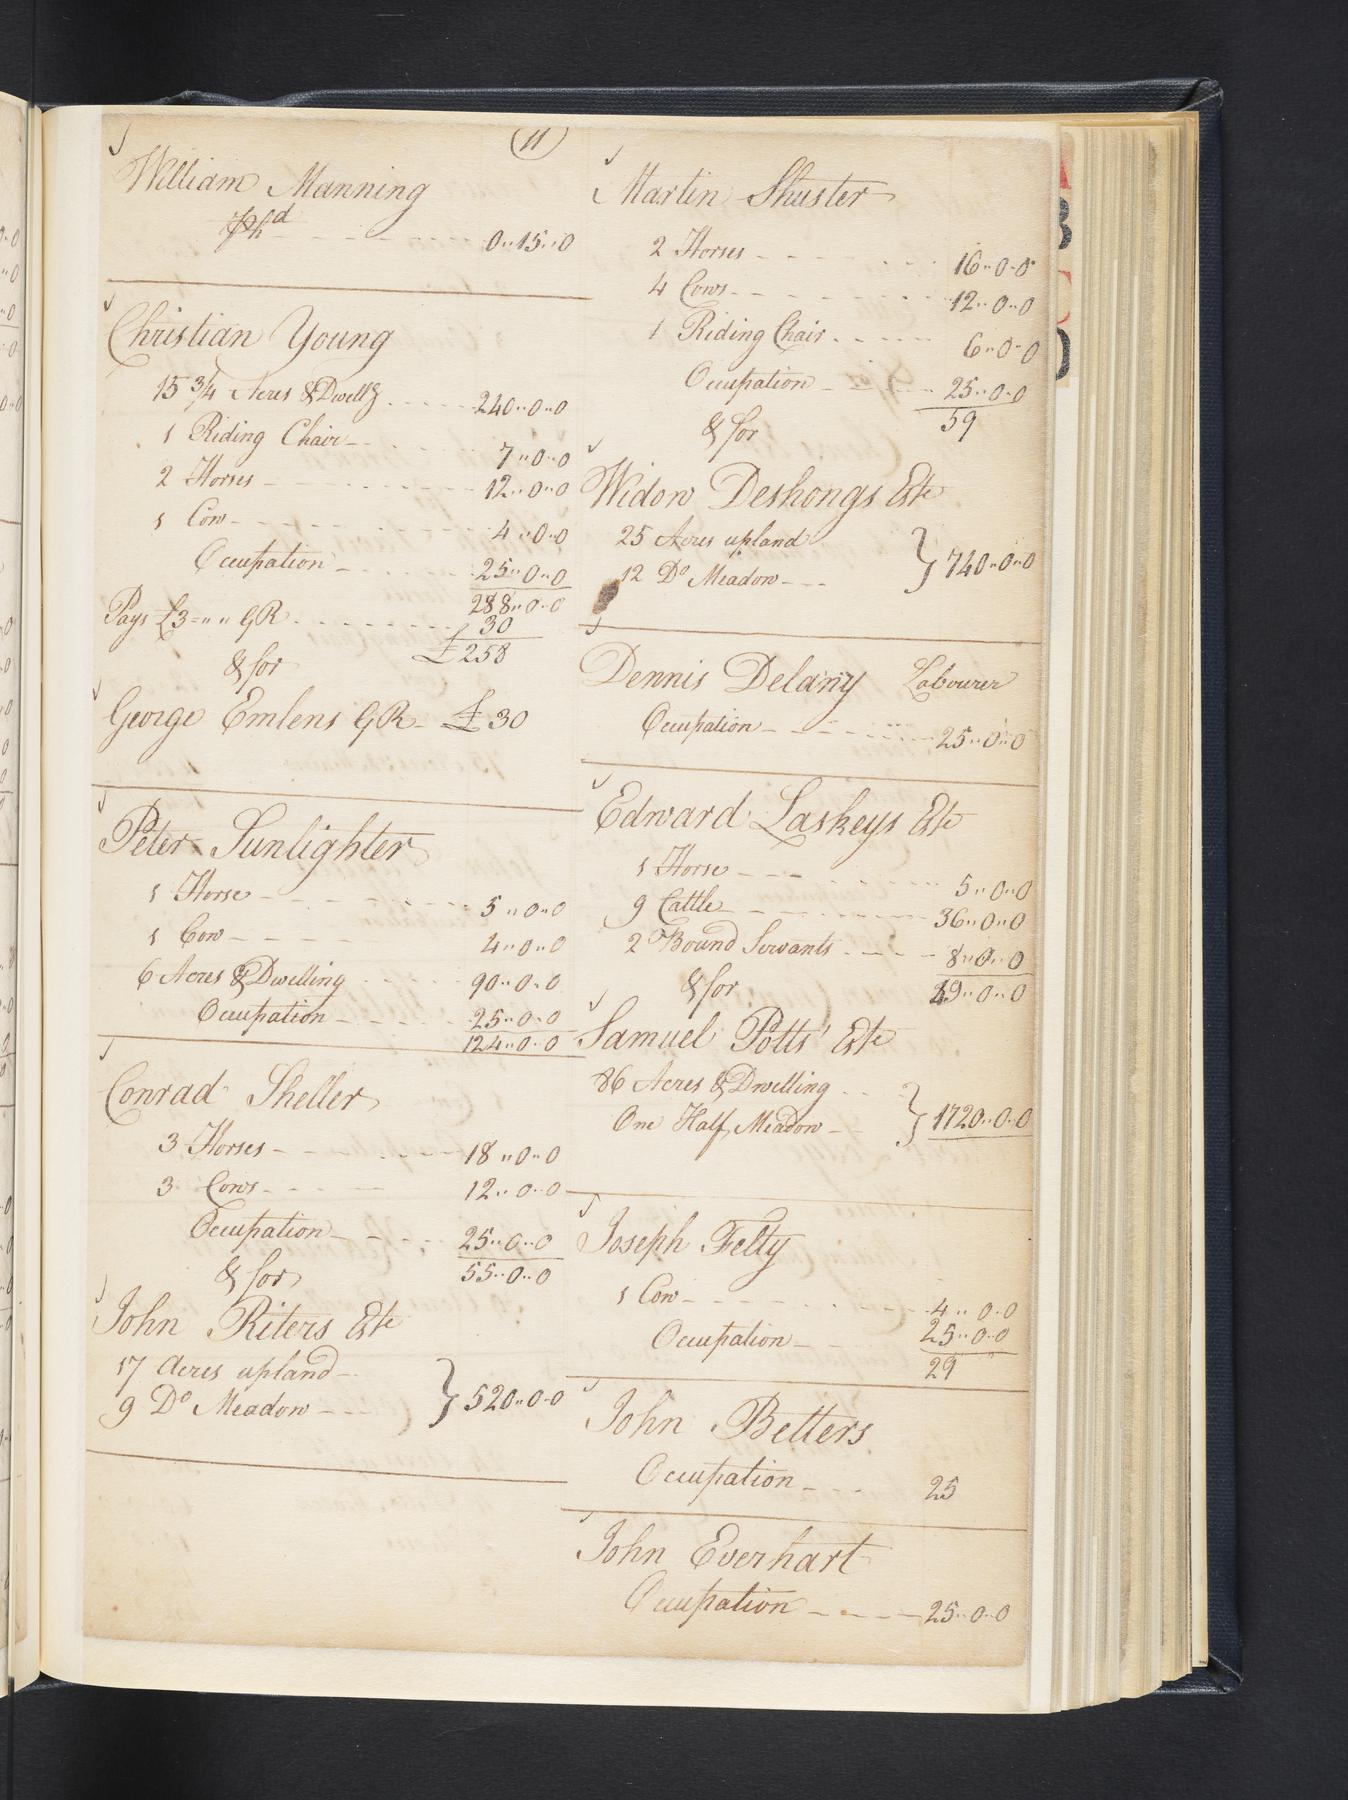 11
William Manning
⅌ hd 0..15..0
Christian Young
15 3/4 Acres & Dwellg 240..0..0
1 Riding Chair 7..0..0
2 Horses 12..0..0
1 Cow 4..0..0
Occupation 25..0..0
288..0..0
Pays £3 = " " GR 30
& for £258
George Emlens GR £30
Peter Sunlighter
1 Horse 5..0..0
1 Cow 4..0..0
6 Acres & Dwelling 90..0..0
Occupation 25..0..0
124..0..0
Conrad Sheller
3 Horses 18..0..0
3 Cows 12..0..0
Occupation 25..0..0
& for 55..0..0
John Riters Este
17 Acres upland
9 Do Meadow } 520..0..0
Martin Shuster
2 Horses 16..0..0
4 Cows 12..0..0
1 Riding Chair 6..0..0
Occupation 25..0..0
& for 59
Widow Deshongs Este
25 Acres upland
12 Do Meadow } 740..0..0
Dennis Delany Labourer
Occupation 25..0..0
Edward Laskeys Este
1 Horse 5..0..0
9 Cattle 36..0..0
2 Bound Servants 8..0..0
& for 49..0..0
Samuel Potts' Este
86 Acres & Dwelling
One Half Meadow } 1720..0..0
Joseph Felty
1 Cow 4..0..0
Occupation 25..0..0
29
John Betters
Occupation 25
John Everhart
Occupation 25..0..0